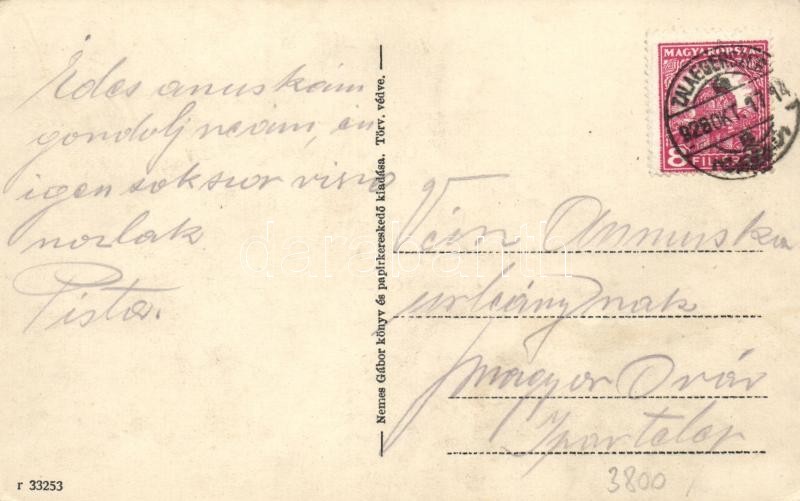 Édes anuskám
gondolj reám, én
igen sokszor visza
nozlak
Pista.
Nemes Gábor könyv és papirkereskedő kiadása. Törv. védve.
r 33253
MAGYARORSZÁG
ZALAEGERSZEG
928 OKT. 17 14
8 FILLÉR
Annuska
urleánynak
Magyar Óvár
Ipartelep
3800
darabanth